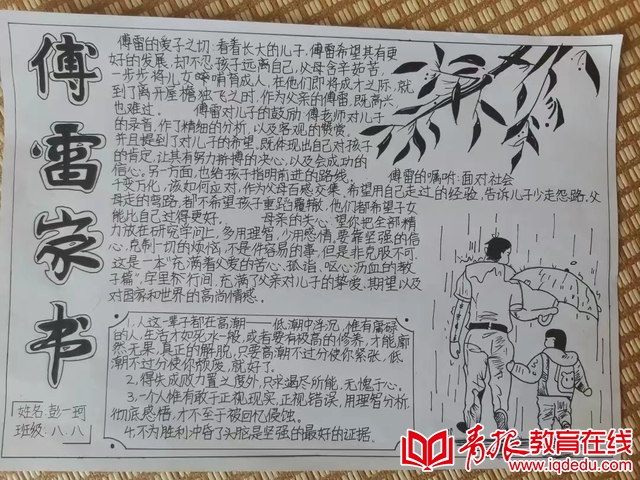 傅雷家书
傅雷的爱子之切:看着长大的儿子,傅雷希望其有更
好的发展,却不忍孩子远离自己,父母含辛茹苦,
一步步将儿女哺育成人,在他们即将成才之际,就
到了离开屋檐独飞之时,作为父亲的傅雷,既高兴
也难过。 傅雷对儿子的鼓励:傅老师对儿子
的录音,作了精细的分析,以及客观的赞赏,
并且提到了对儿子的希望,既体现出自己对孩子
的肯定,让其有努力拼搏的决心,以及会成功的
信心。另一方面,也给孩子指明前进的路线。 傅雷的嘱咐:面对社会
千变万化,孩如何应对,作为父母百感交集,希望用自己走过的经验,告诉儿子少走怨路,父
母走的弯路,都不希望孩子重蹈覆辙,他们都希望子女
能比自己过得更好。 母亲的关心:望你把全部精
力放在研究学问上,多用理智,少用感情,要靠坚强的信
心,克制一切的烦恼,不是件容易的事,但是非克服不可,
这是一本“充满着父爱的苦心孤诣,呕心沥血的教
子篇”,字里行间,充满了父亲对儿子的挚爱,期望以及
对国家和世界的高尚情感。
1.人这一辈子都在高潮——低潮中浮沉,惟有庸碌
的人,生活才如死水一般,或者要有极高的修养,才能廓
然无累,真正的解脱,只要高潮不过分使你紧张,低
潮不过分使你颓废,就好了。
2,得失成败力置之度外,只求竭尽所能,无愧于心。
3,一个人惟有敢于正视现实,正视错误,用理智分析,
彻底感悟,才不至于被回忆侵蚀。
4,不为胜利冲昏了头脑是坚强的最好的证据.
姓名:彭一珂
班级:八.八
青报教育在线
www.iqdedu.com